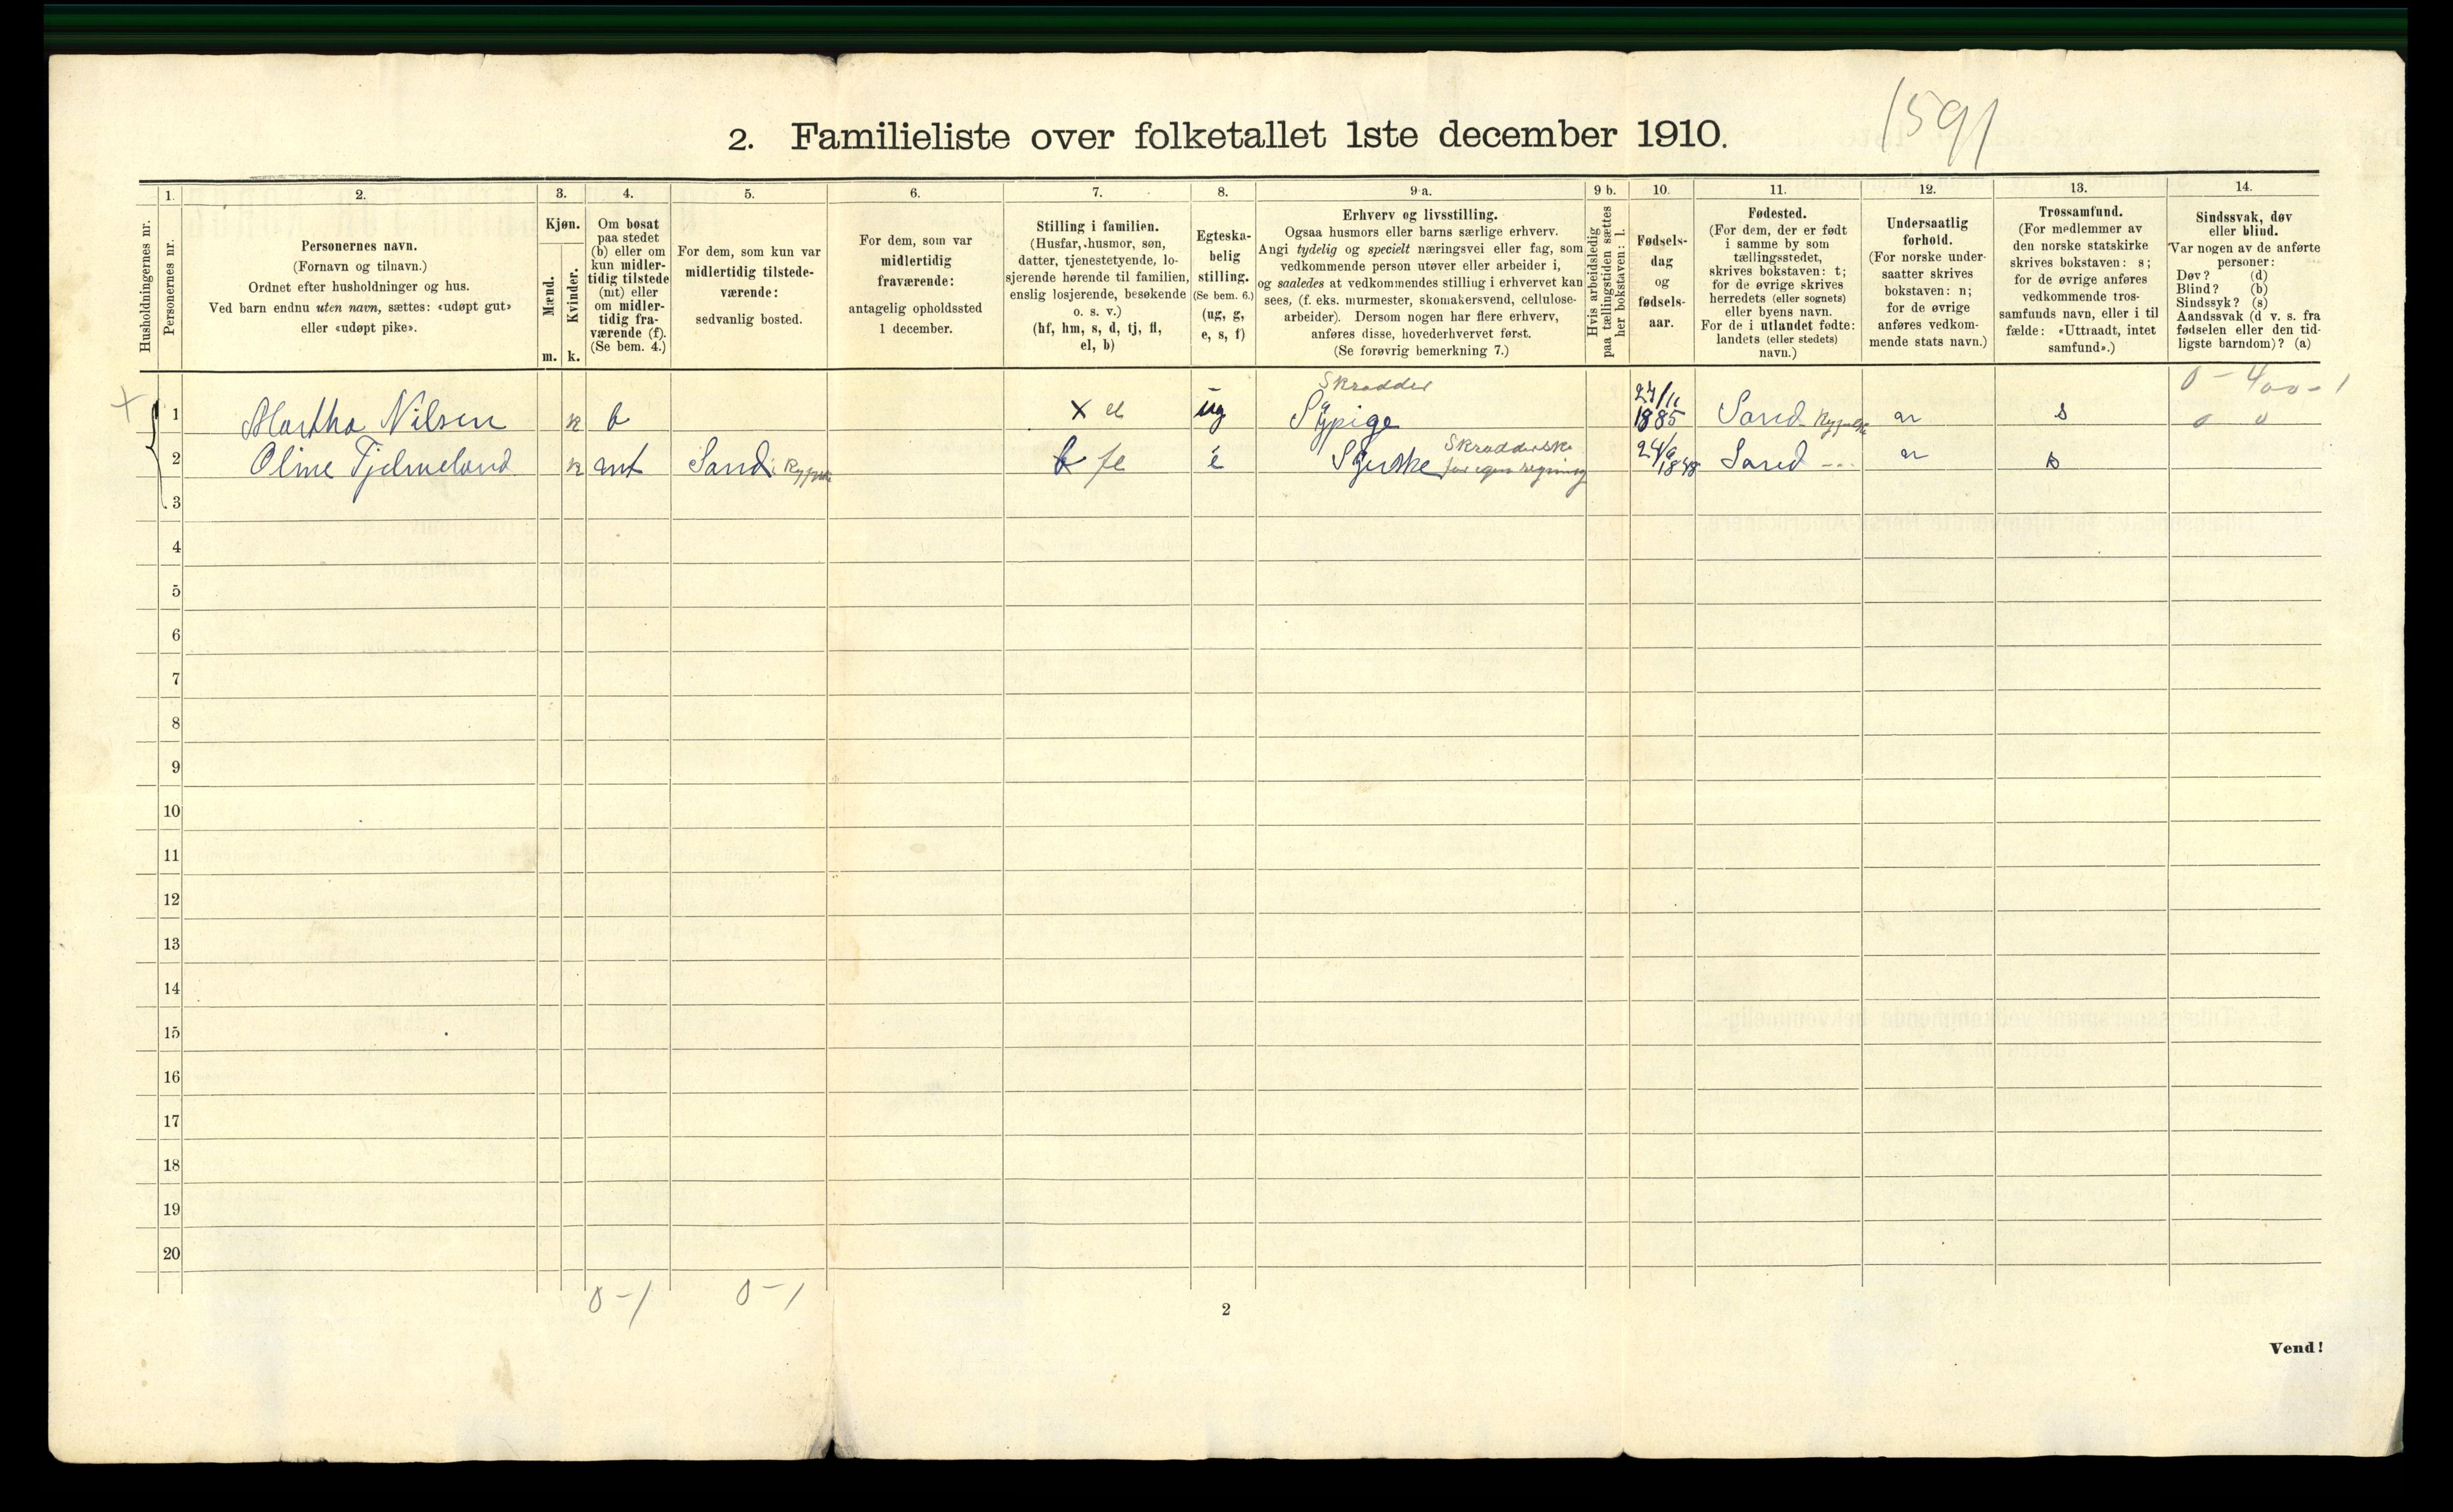 1591
2. Familieliste over folketallet 1ste december 1910.
Husholdningernes nr.
1.
Personernes nr.
2.
Personernes navn.
(Fornavn og tilnavn.)
Ordnet efter husholdninger og hus.
Ved barn endnu uten navn, sættes: «udøpt gut»
eller «udøpt pike».
3.
Kjøn.
Mænd.
Kvinder.
m. k.
4.
Om bosat
paa stedet
(b) eller om
kun midler-
tidig tilstede
(mt) eller
om midler-
tidig fra-
værende (f).
(Se bem. 4.)
5.
For dem, som kun var
midlertidig tilstede-
værende:
sedvanlig bosted.
6.
For dem, som var
midlertidig
fraværende:
antagelig opholdssted
1 december.
7.
Stilling i familien.
(Husfar, husmor, søn,
datter, tjenestetyende, lo-
sjerende hørende til familien,
enslig losjerende, besøkende
o. s. v.)
(hf, hm, s, d, tj, fl,
el, b)
8.
Egteska-
belig
stilling.
(Se bem. 6.)
(ug, g,
e, s, f)
9 a.
Erhverv og livsstilling.
Ogsaa husmors eller barns særlige erhverv.
Angi tydelig og specielt næringsvei eller fag, som
vedkommende person utøver eller arbeider i,
og saaledes at vedkommendes stilling i erhvervet kan
sees, (f. eks. murmester, skomakersvend, cellulose-
arbeider). Dersom nogen har flere erhverv,
anføres disse, hovederhvervet først.
(Se forøvrig bemerkning 7.)
9 b.
Hvis arbeidsledig
paa tællingstiden sættes
her bokstaven: l.
10.
Fødsels-
dag
og
fødsels-
aar.
11.
Fødested.
(For dem, der er født
i samme by som
tællingsstedet,
skrives bokstaven: t;
for de øvrige skrives
herredets (eller sognets)
eller byens navn.
For de i utlandet fødte:
landets (eller stedets)
navn.)
12.
Undersaatlig
forhold.
(For norske under-
saatter skrives
bokstaven: n;
for de øvrige
anføres vedkom-
mende stats navn.)
13.
Trossamfund.
(For medlemmer av
den norske statskirke
skrives bokstaven: s;
for de øvrige anføres
vedkommende tros-
samfunds navn, eller i til
fælde: «Uttraadt, intet
samfund».)
14.
Sindssvak, døv
eller blind.
Var nogen av de anførte
personer:
Døv? (d)
Blind? (b)
Sindssyk? (s)
Aandssvak (d v. s. fra
fødselen eller den tid-
ligste barndom)? (a)
0 - 400 - 1
1 Martha Nilsen k b x el ug Skrædder Sypige 24/11 1885 Sand Ryfylke n s 0 0
2 Oline Tjelmeland k mt Sand i Ryfylke b fl e Syerske Skrædderske for egen regning 24/9 1848 Sand n s
3
4
5
6
7
8
9
10
11
12
13
14
15
16
17
18
19
20
0-1 0-1
2
Vend!